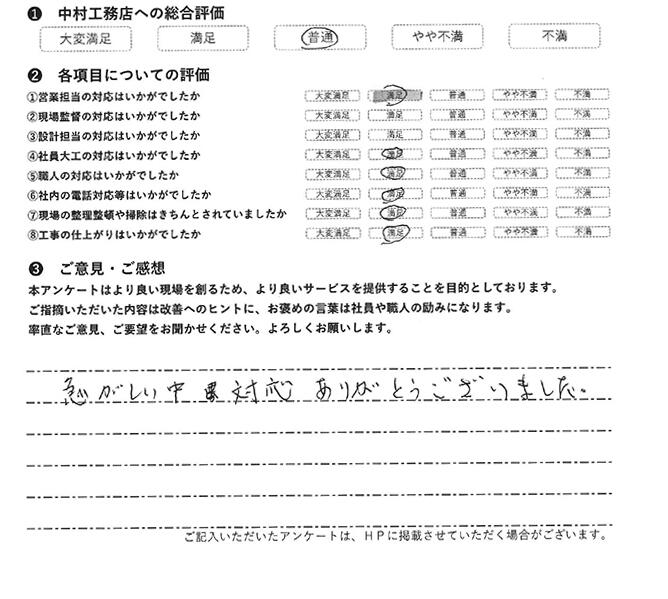 ❶ 中村工務店への総合評価
大変満足 満足 普通 やや不満 不満
❷ 各項目についての評価
①営業担当の対応はいかがでしたか 大変満足 満足 普通 やや不満 不満
②現場監督の対応はいかがでしたか 大変満足 満足 普通 やや不満 不満
③設計担当の対応はいかがでしたか 大変満足 満足 普通 やや不満 不満
④社員大工の対応はいかがでしたか 大変満足 満足 普通 やや不満 不満
⑤職人の対応はいかがでしたか 大変満足 満足 普通 やや不満 不満
⑥社内の電話対応等はいかがでしたか 大変満足 満足 普通 やや不満 不満
⑦現場の整理整頓や掃除はきちんとされていましたか 大変満足 満足 普通 やや不満 不満
⑧工事の仕上がりはいかがでしたか 大変満足 満足 普通 やや不満 不満
❸ ご意見・ご感想
本アンケートはより良い現場を創るため、より良いサービスを提供することを目的としております。
ご指摘いただいた内容は改善へのヒントに、お褒めの言葉は社員や職人の励みになります。
率直なご意見、ご要望をお聞かせください。よろしくお願いします。
がしい中 対応 ありがとうございました。
ご記入いただいたアンケートは、ＨＰに掲載させていただく場合がございます。